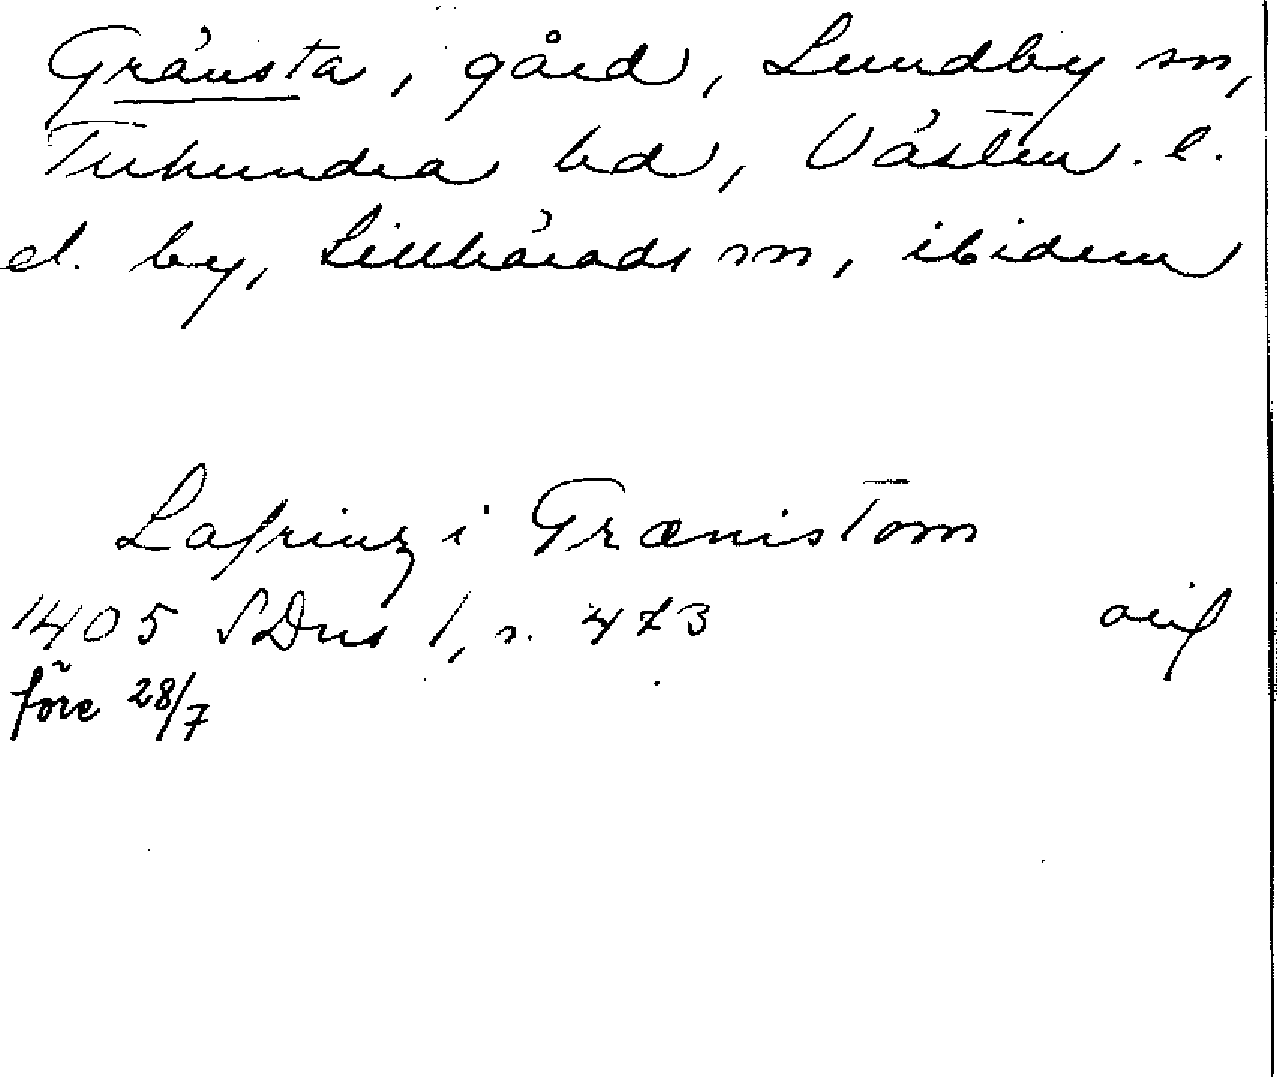 Gränsta, gård, Lundby sn,
Tuhundra hd, Västm. l.
el. by, Lillhärads sn, ibidem
Lafrinz i Grænistom
1405 SDns 1, s. 473 avsk
före 28/7